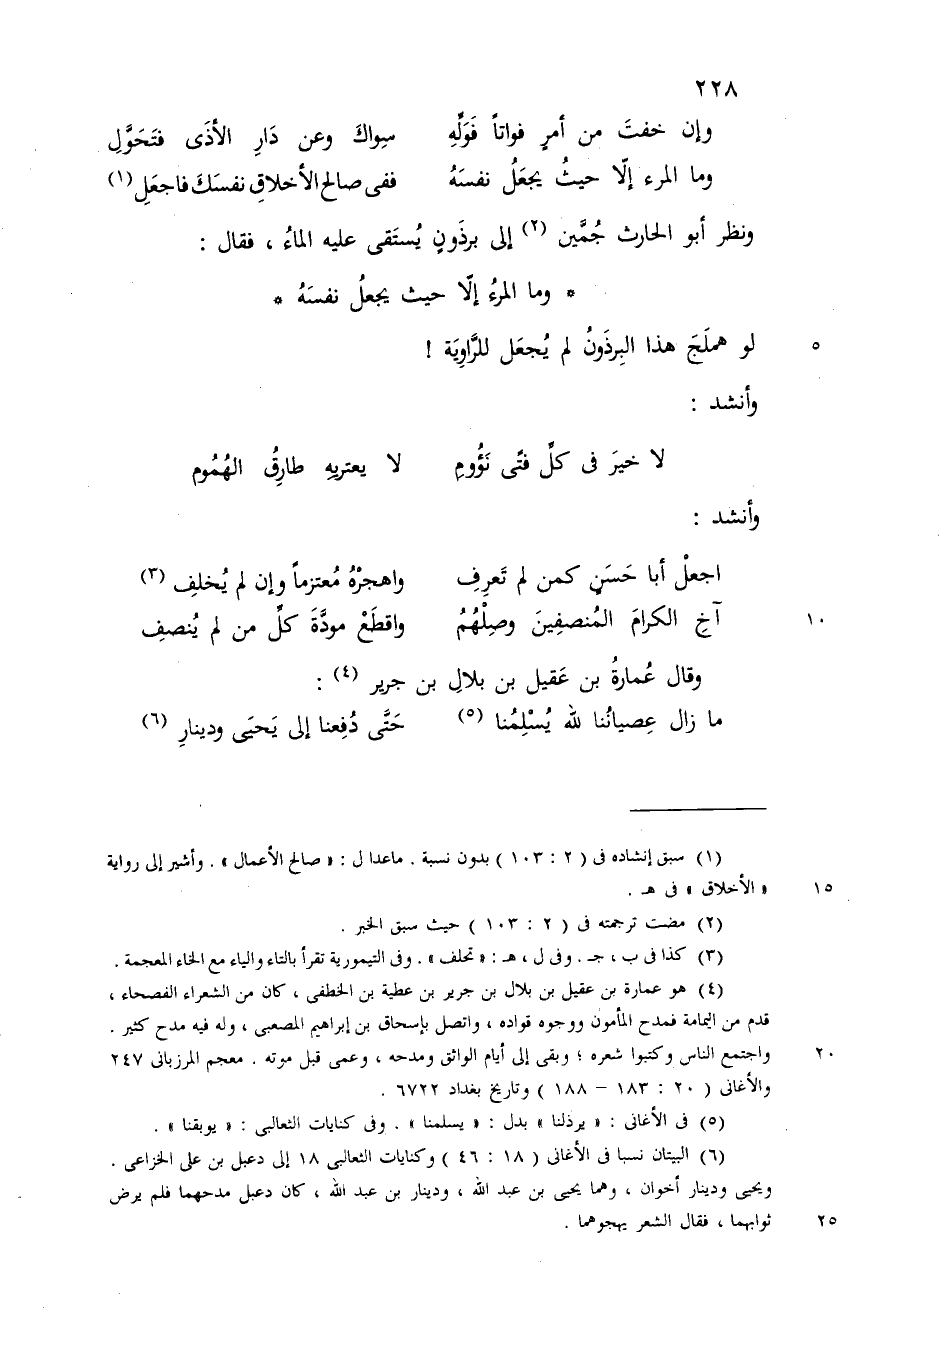 ٢٢٨
وإن خفتَ من أمرٍ فواتاً فَوَلِّهِ سِواكَ وعن دَارِ الأذَى فتَحَوَّلِ
وما المرء إلّا حيثُ يجعَلُ نفسَهُ ففى صالح الأخلاقِ نفسَكَ فاجعَلِ (١)
ونظر أبو الحارث جُمَّين (٢) إلى برذَونٍ يُستَقى عليه الماءُ ، فقال :
* وما المرءُ إلّا حيث يجعلُ نفسَهُ *
٥ لو هملَجَ هذا البِرذَونُ لم يُجعَل للرَّاوِيَة !
وأنشد :
لا خيرَ فى كلِّ فتًى نَؤُومِ لا يعتريهِ طارِقُ الهُمُوم
وأنشد :
اجعلْ أبا حَسَنٍ كمن لم تَعرِفِ واهجرْهُ مُعتزماً وإن لم يُخلفِ (٣)
١٠ آخِ الكرامَ المُنصفِينَ وصِلْهُمُ واقطَعْ مودَّةَ كلِّ من لم يُنصِفِ
وقال عُمارةُ بن عَقيل بن بلالِ بن جرير (٤) :
ما زال عِصيانُنا لله يُسْلِمُنا (٥) حَتَّى دُفِعنا إلى يَحيَى ودينارِ (٦)
(١) سبق إنشاده فى ( ٢ : ١٠٣ ) بدون نسبة . ماعدا ل : « صالح الأعمال » . وأشير إلى رواية
١٥ « الأخلاق » فى هـ .
(٢) مضت ترجمته فى ( ٢ : ١٠٣ ) حيث سبق الخبر .
(٣) كذا فى ب ، جـ . وفى ل ، هـ : « تحلف » . وفى التيمورية تقرأ بالتاء والياء مع الخاء المعجمة .
(٤) هو عمارة بن عقيل بن بلال بن جرير بن عطية بن الخطفى ، كان من الشعراء الفصحاء ،
قدم من اليمامة فمدح المأمون ووجوه قواده ، واتصل بإسحاق بن إبراهيم المصعبى ، وله فيه مدح كثير .
٢٠ واجتمع الناس وكتبوا شعره ؛ وبقى إلى أيام الواثق ومدحه ، وعمى قبل موته . معجم المرزبانى ٢٤٧
والأغانى ( ٢٠ : ١٨٣ – ١٨٨ ) وتاريخ بغداد ٦٧٢٢ .
(٥) فى الأغانى : « يرذلنا » بدل : « يسلمنا » . وفى كنايات الثعالبى : « يوبقنا » .
(٦) البيتان نسبا فى الأغانى ( ١٨ : ٤٦ ) وكنايات الثعالبى ١٨ إلى دعبل بن على الخزاعى .
ويحيى ودينار أخوان ، وهما يحيى بن عبد الله ، ودينار بن عبد الله ، كان دعبل مدحهما فلم يرض
٢٥ ثوابهما ، فقال الشعر يهجوهما .